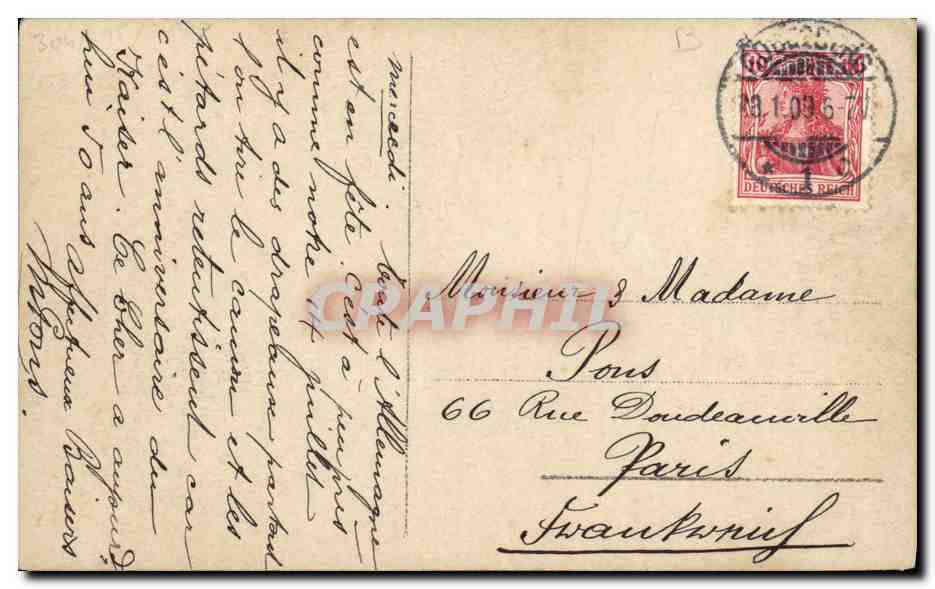 mercredi, toute l'Allemagne
est en fête c'est à peu près
comme notre 14 juillet
il y a des drapeaux partout
l'on tire le canon et les
pétards retentissent car
c'est l'anniversaire du
Kaiser. Ce Cher a aujourd'
hui 50 ans Affectueux Baisers
Pons.
Monsieur & Madame
Pons
66 Rue Doudeauville
Paris
Frankreich
10 10
DEUTSCHES REICH
1.09 6-7
* 1
CRAPHIL
B